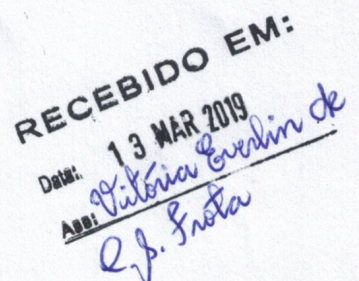 RECEBIDO EM:
Data: 13 MAR 2019
Ass: Vitória Everlin de
G. S. Frota